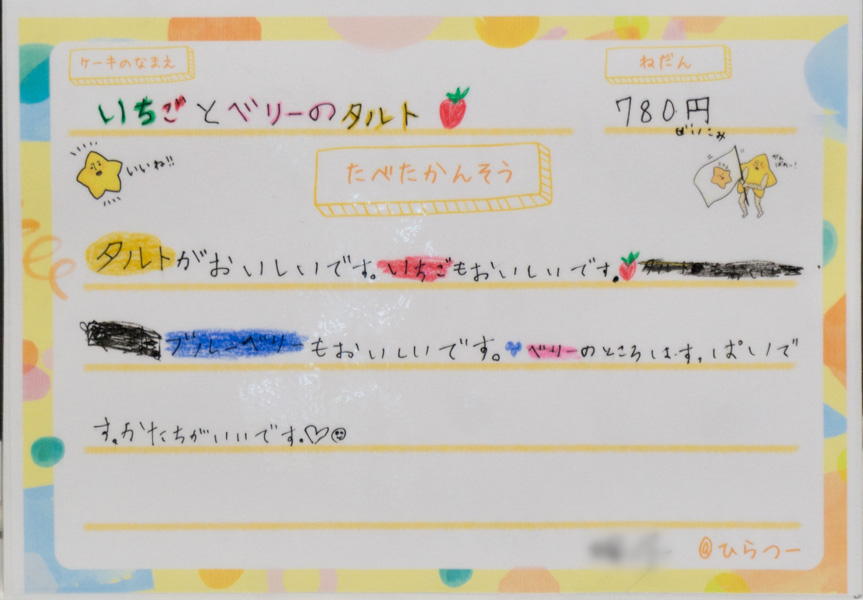 ケーキのなまえ
ねだん
いちごとベリーのタルト
780円
ぜいこみ
いいね!!
たべたかんそう
タルトがおいしいです。いちごもおいしいです。
ブルーベリーもおいしいです。ベリーのところはす。ぱいで
す。かたちがいいです。
@ひらつー